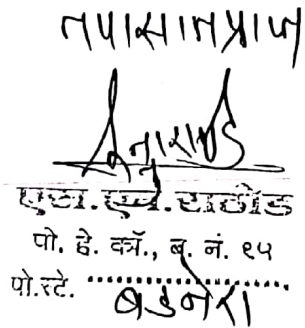 तपासानप्राज
एस.एच.राठोड
पो. हे. कॉ., ब. नं. ९५
पो.स्टे. बडनेरा